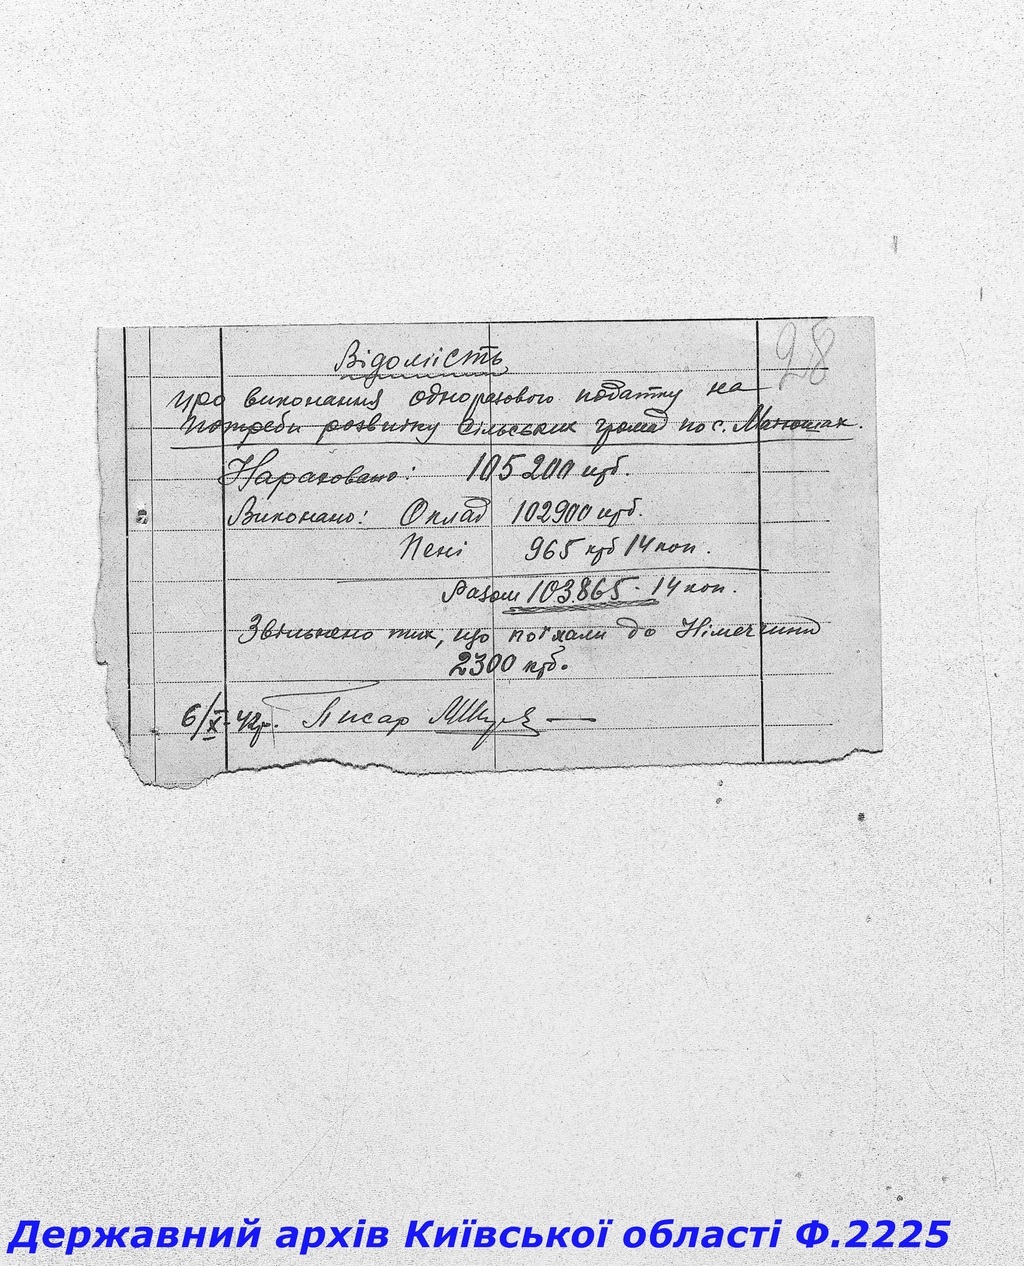 28
Відомість
про виконання одноразового податку на
потреби розвитку сільських громад по с.
Нараховано: 105200 крб.
Виконано: Оклад 102900 крб.
Пені 965 крб 14 коп.
Разом 103.865 - 14 коп.
Звільнено тих, що поїхали до Німеччини
2300 крб.
6/X-42р. Писар
Державний архів Київської області Ф.2225